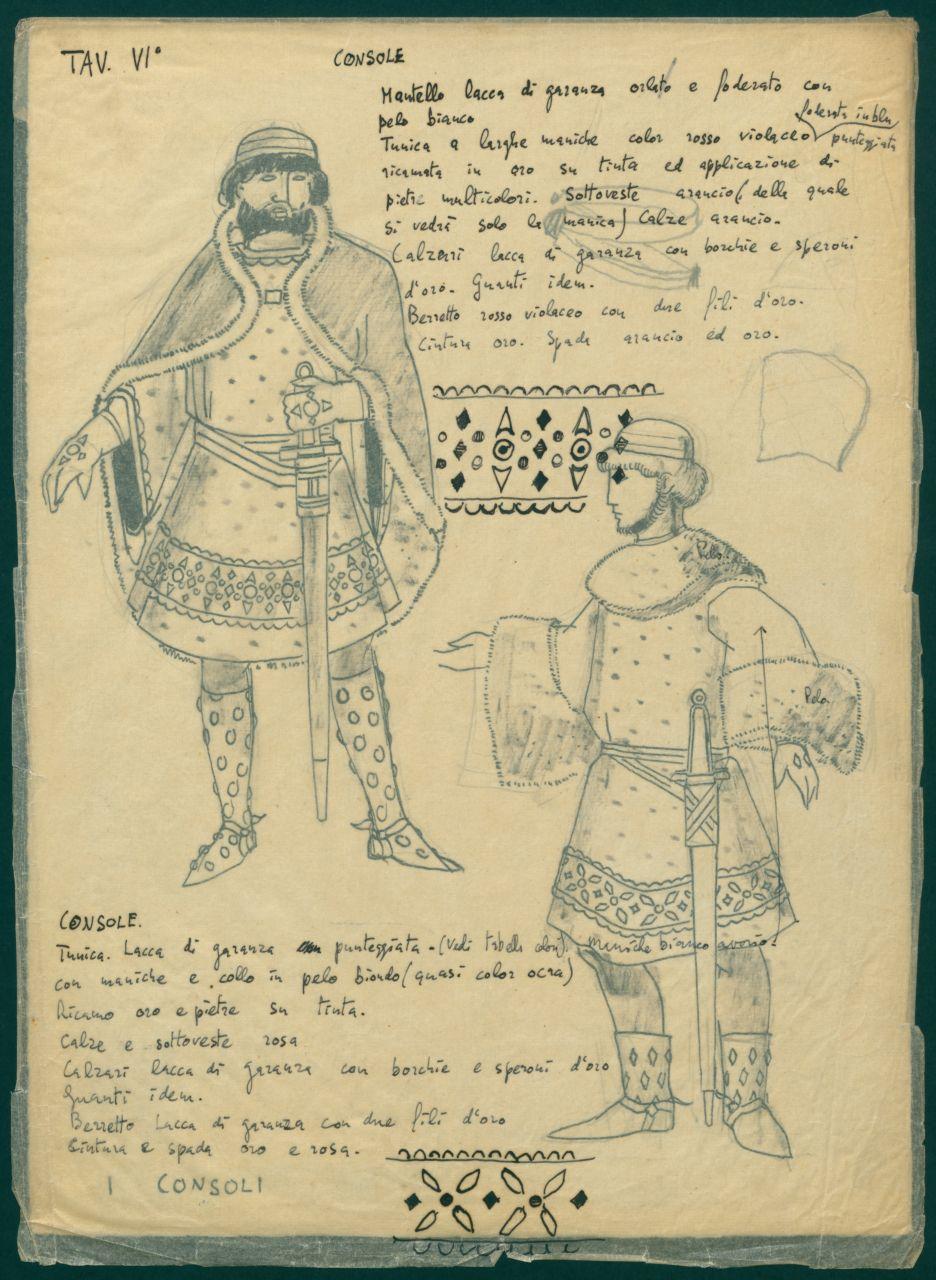 TAV. VI°
CONSOLE
Mantello lacca di garanza orlato e foderato con
pelo bianco
foderata in blu
Tunica a larghe maniche color rosso violaceo punteggiata
ricamata in oro su tinta ed applicazione di
pietre multicolori. Sottoveste arancio (della quale
si vedrà solo la manica) Calze arancio.
Calzari lacca di garanza con borchie e speroni
d'oro. Guanti idem.
Berretto rosso violaceo con due fili d'oro.
Cintura oro. Spada arancio ed oro.
Pelo
Pelo
CONSOLE.
Tunica. Lacca di garanza punteggiata - (Vedi tabella colori). Maniche bianco avorio
con maniche e collo in pelo biondo (quasi color ocra)
Ricamo oro e pietre su tinta.
Calze e sottoveste rosa
Calzari lacca di garanza con borchie e speroni d'oro
Guanti idem.
Berretto Lacca di garanza con due fili d'oro
Cintura e spada oro e rosa.
I CONSOLI